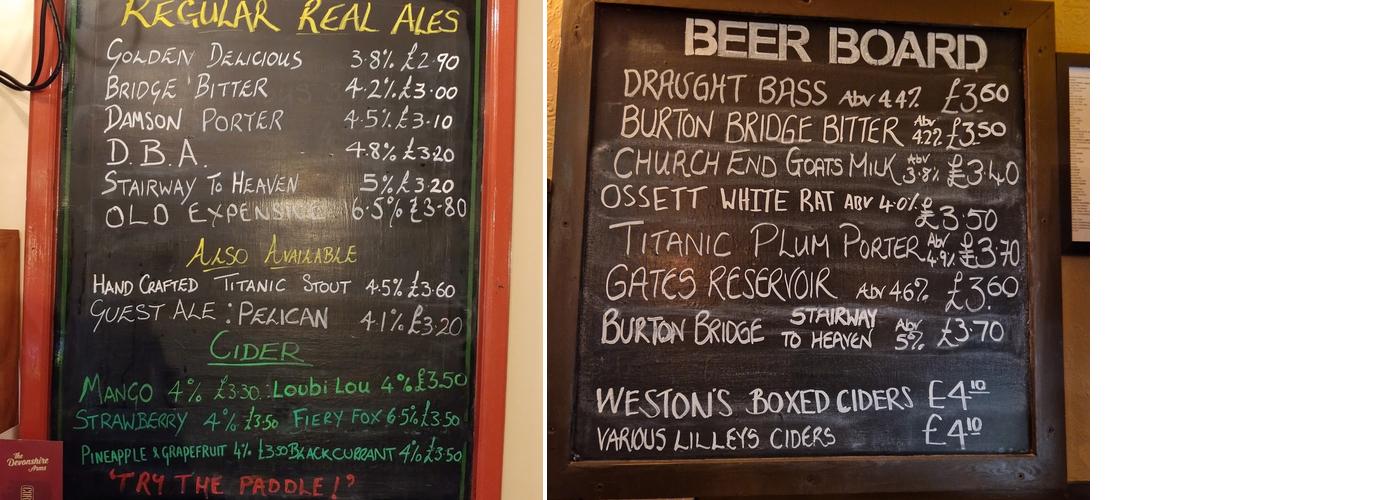 REGULAR REAL ALES
GOLDEN DELICIOUS 3.8% £2.90
BRIDGE BITTER 4.2% £3.00
DAMSON PORTER 4.5% £3.10
D.B.A. 4.8% £3.20
STAIRWAY TO HEAVEN 5% £3.20
OLD EXPENSIVE 6.5% £3.80
ALSO AVAILABLE
HAND CRAFTED TITANIC STOUT 4.5% £3.60
GUEST ALE : PELICAN 4.1% £3.20
CIDER
MANGO 4% £3.50 Loubi Lou 4% £3.50
STRAWBERRY 4% £3.50 FIERY FOX 6.5% £3.50
PINEAPPLE & GRAPEFRUIT 4% £3.50 BLACKCURRANT 4% £3.50
"TRY THE PADDLE!"
The
Devonshire
Arms
BEER BOARD
DRAUGHT BASS Abv 4.4% £3.60
BURTON BRIDGE BITTER Abv 4.2% £3.50
CHURCH END GOATS MILK Abv 3.8% £3.40
OSSETT WHITE RAT ABV 4.0% £3.50
TITANIC PLUM PORTER Abv 4.9% £3.70
GATES RESERVOIR Abv 4.6% £3.60
BURTON BRIDGE STAIRWAY TO HEAVEN Abv 5% £3.70
WESTON'S BOXED CIDERS £4.10
VARIOUS LILLEYS CIDERS £4.10